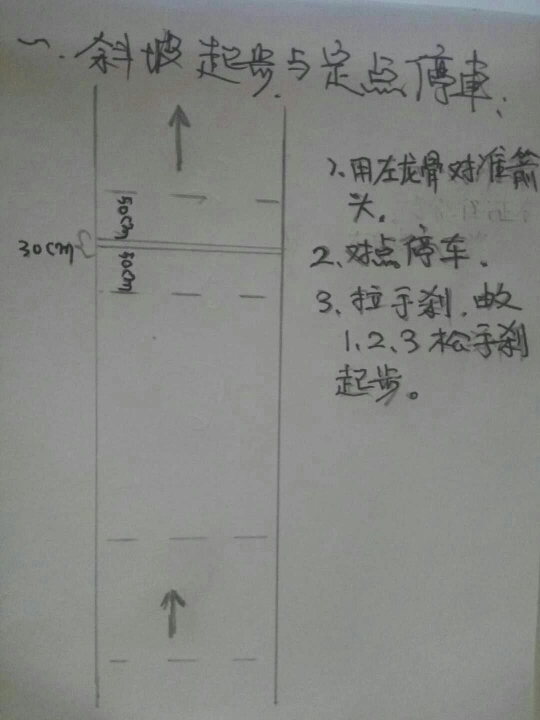 一.斜坡起步与定点停車;
1、用左龙骨对准箭
头。
50cm
30cm
50cm
2、对点停车.
3、拉手刹.由
1.2.3松手刹
起步。